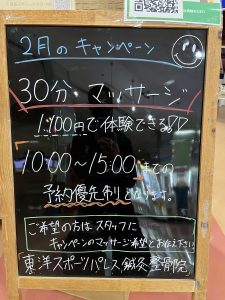 2月のキャンペーン
30分・マッサージ
1,100円で体験できる♡♡
10:00~15:00までの
予約優先制となります。
ご希望の方はスタッフに
キャンペーンのマッサージ希望とお伝え下さい
東洋スポーツパレス鍼灸整骨院